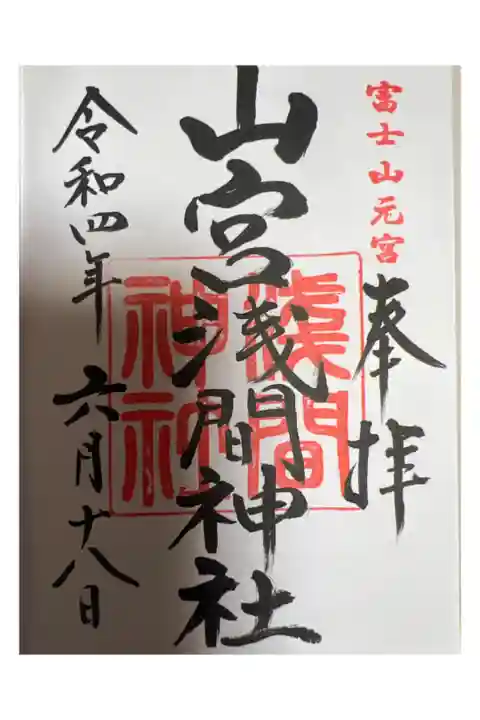 富士山元宮
奉拝
山宮浅間神社
淺間
神社
令和四年 六月十八日